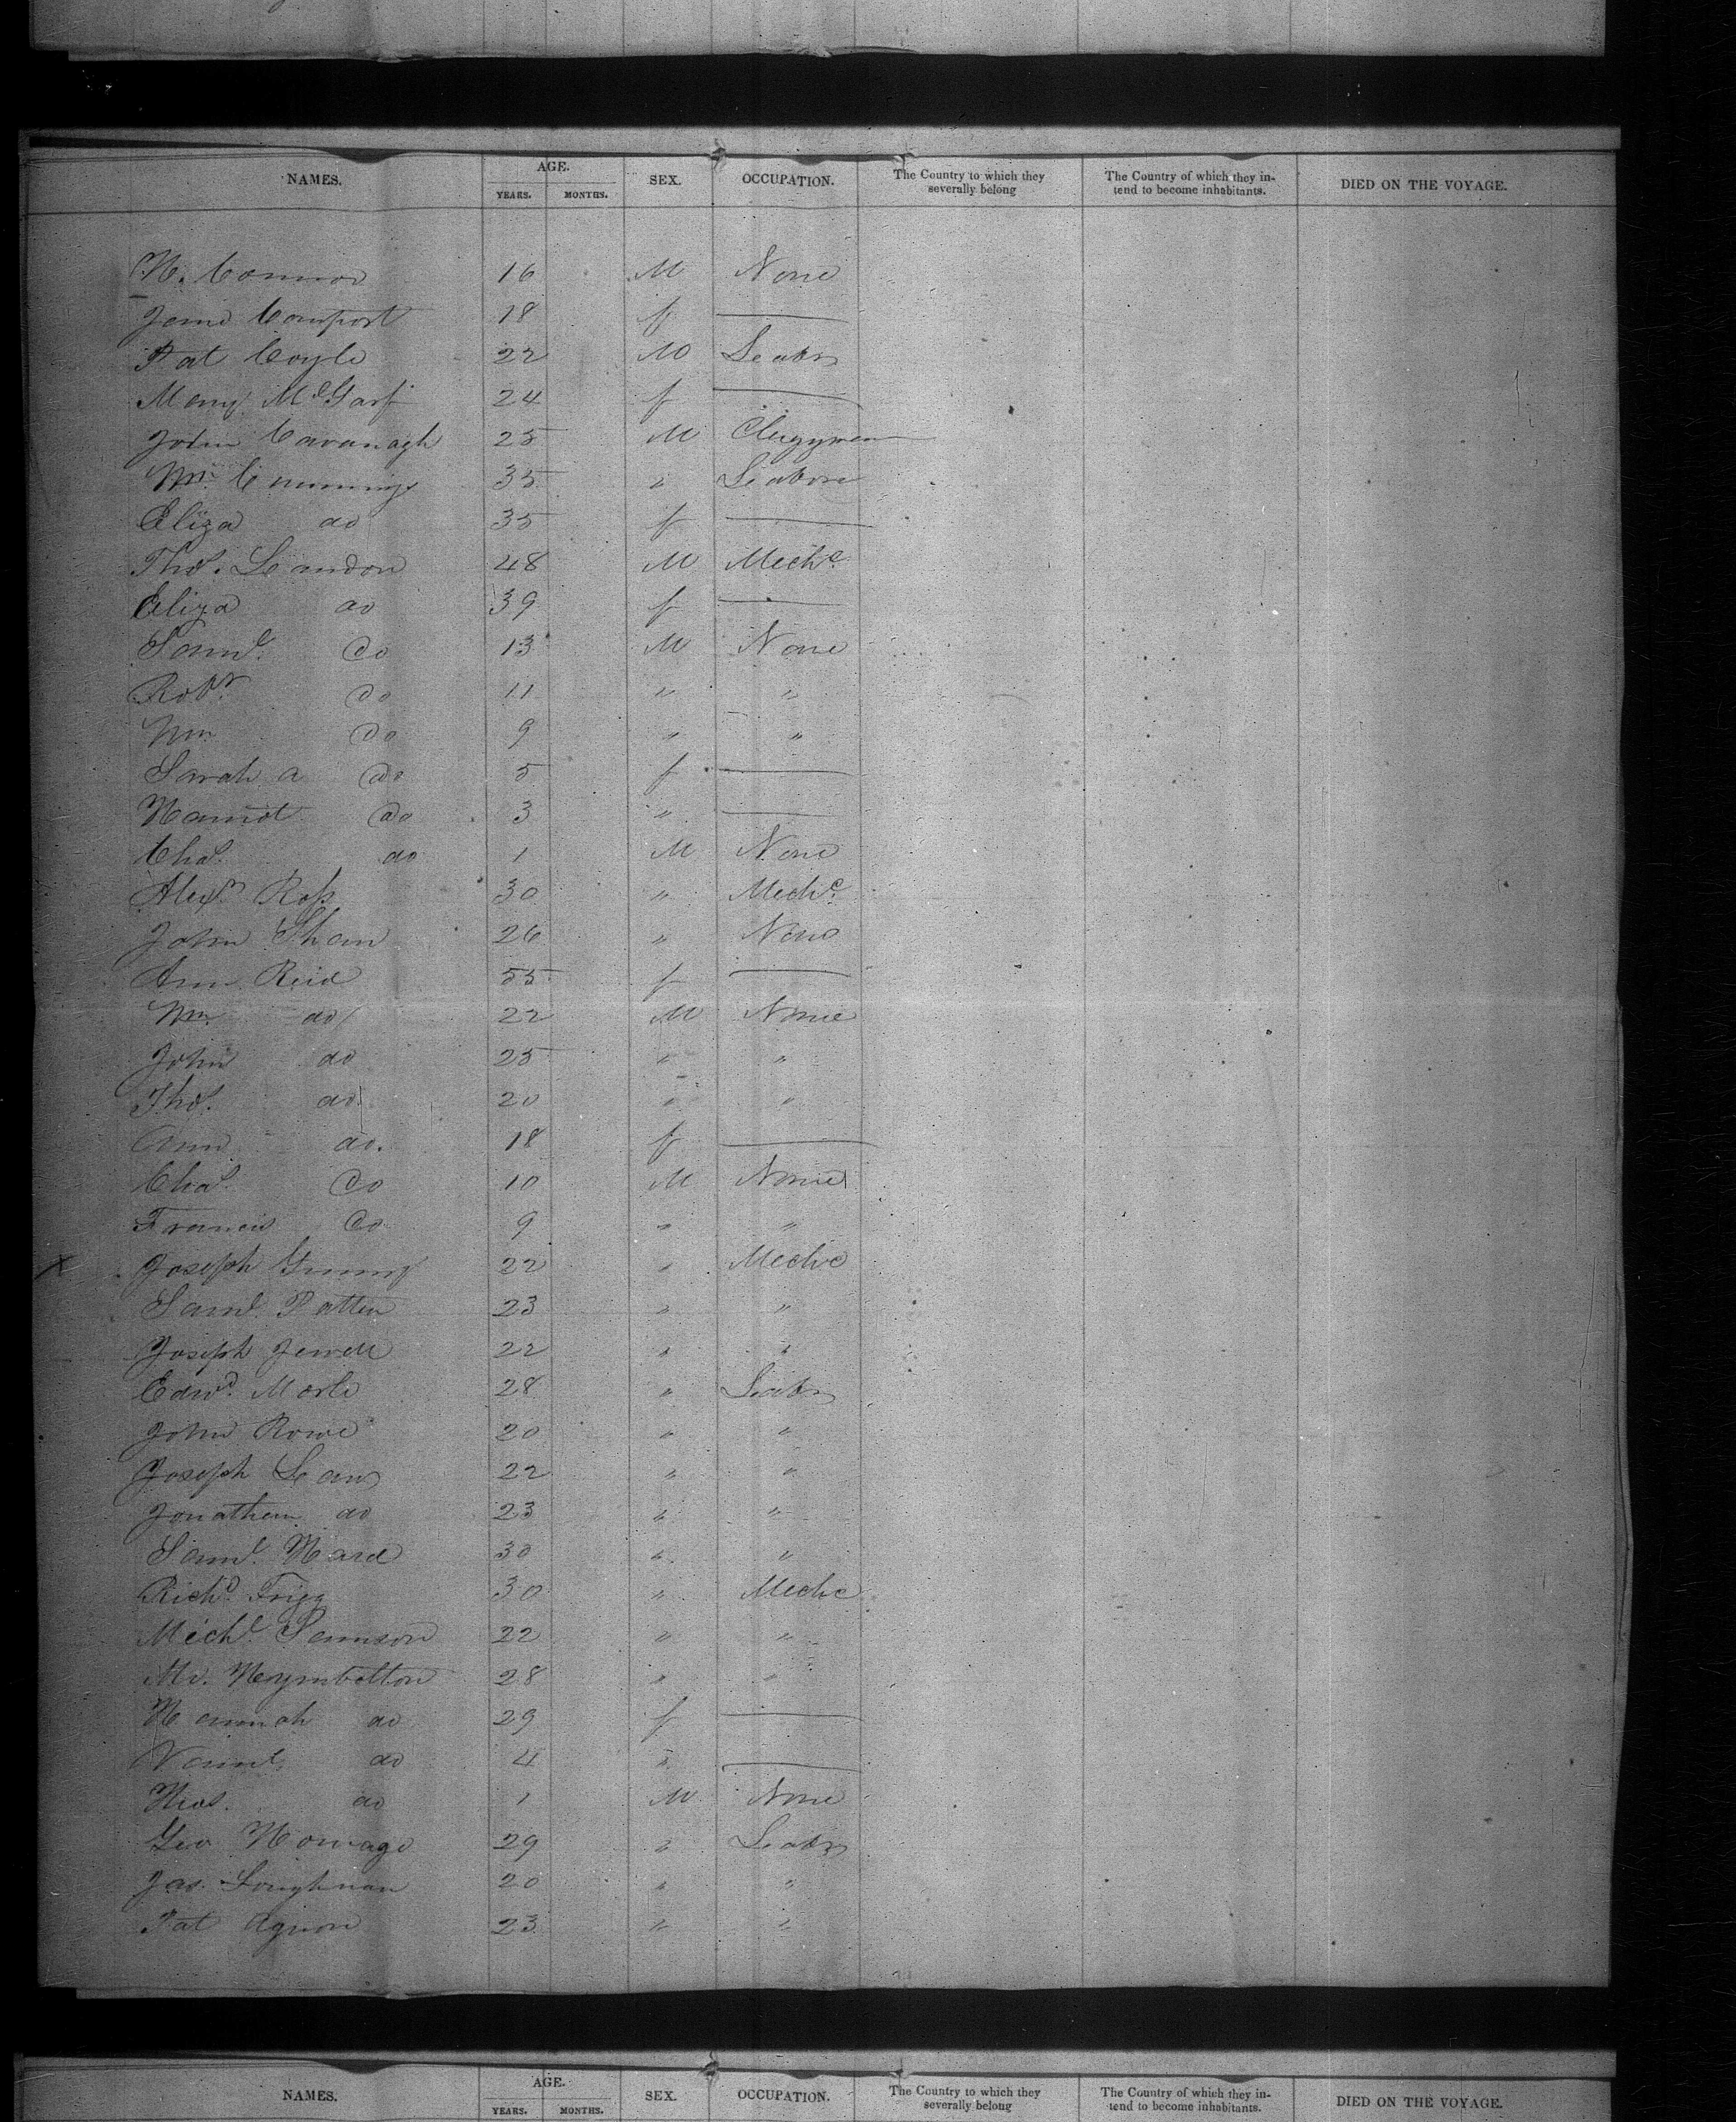 NAMES. AGE. SEX. OCCUPATION. The Country to which they severally belong The Country of which they intend to become inhabitants. DIED ON THE VOYAGE.
YEARS. MONTHS.
H. Connor 16 M None
Jane Comfort 18 f —
Pat Coyle 22 M Labr
Mary 24 f —
John Cavanagh 25 M Clergyman
Wm. Cummings 35 " Labore
Eliza do 35 f —
Thos. Landon 48 M Mechc
Eliza do 39 f —
Saml. do 13 M None
Robt. do 11 " "
Wm do 9 " "
Sarah a do 5 f —
Harriot do 3 " —
Chas. do 1 M None
Alexr. Ross 30 " Mechc.
John Shaw 26 " None
Ann Reid 55 f —
Wm. do 22 M None
John do 25 " "
Thos. do 20 " "
Ann do. 18 f —
Chas. do 10 M None
Francis do 9 " "
X Joseph 22 " Mechc
Saml. Patten 23 " "
Joseph Jewell 22 " "
Edwd. 28 " Labr
John Rowe 20 " "
Joseph Law 22 " "
Jonathan do 23 " "
Saml. Ward 30 " "
Richd. Trigg 30 " Mechc
Michl. Samson 22 " "
28 " "
Hannah do 29 f —
do 4 " —
do 1 M None
Geo 29 " Labr
Jas. Loughnan 20 " "
Pat Agnon 23 " "
NAMES. AGE. SEX. OCCUPATION. The Country to which they severally belong The Country of which they intend to become inhabitants. DIED ON THE VOYAGE.
YEARS. MONTHS.